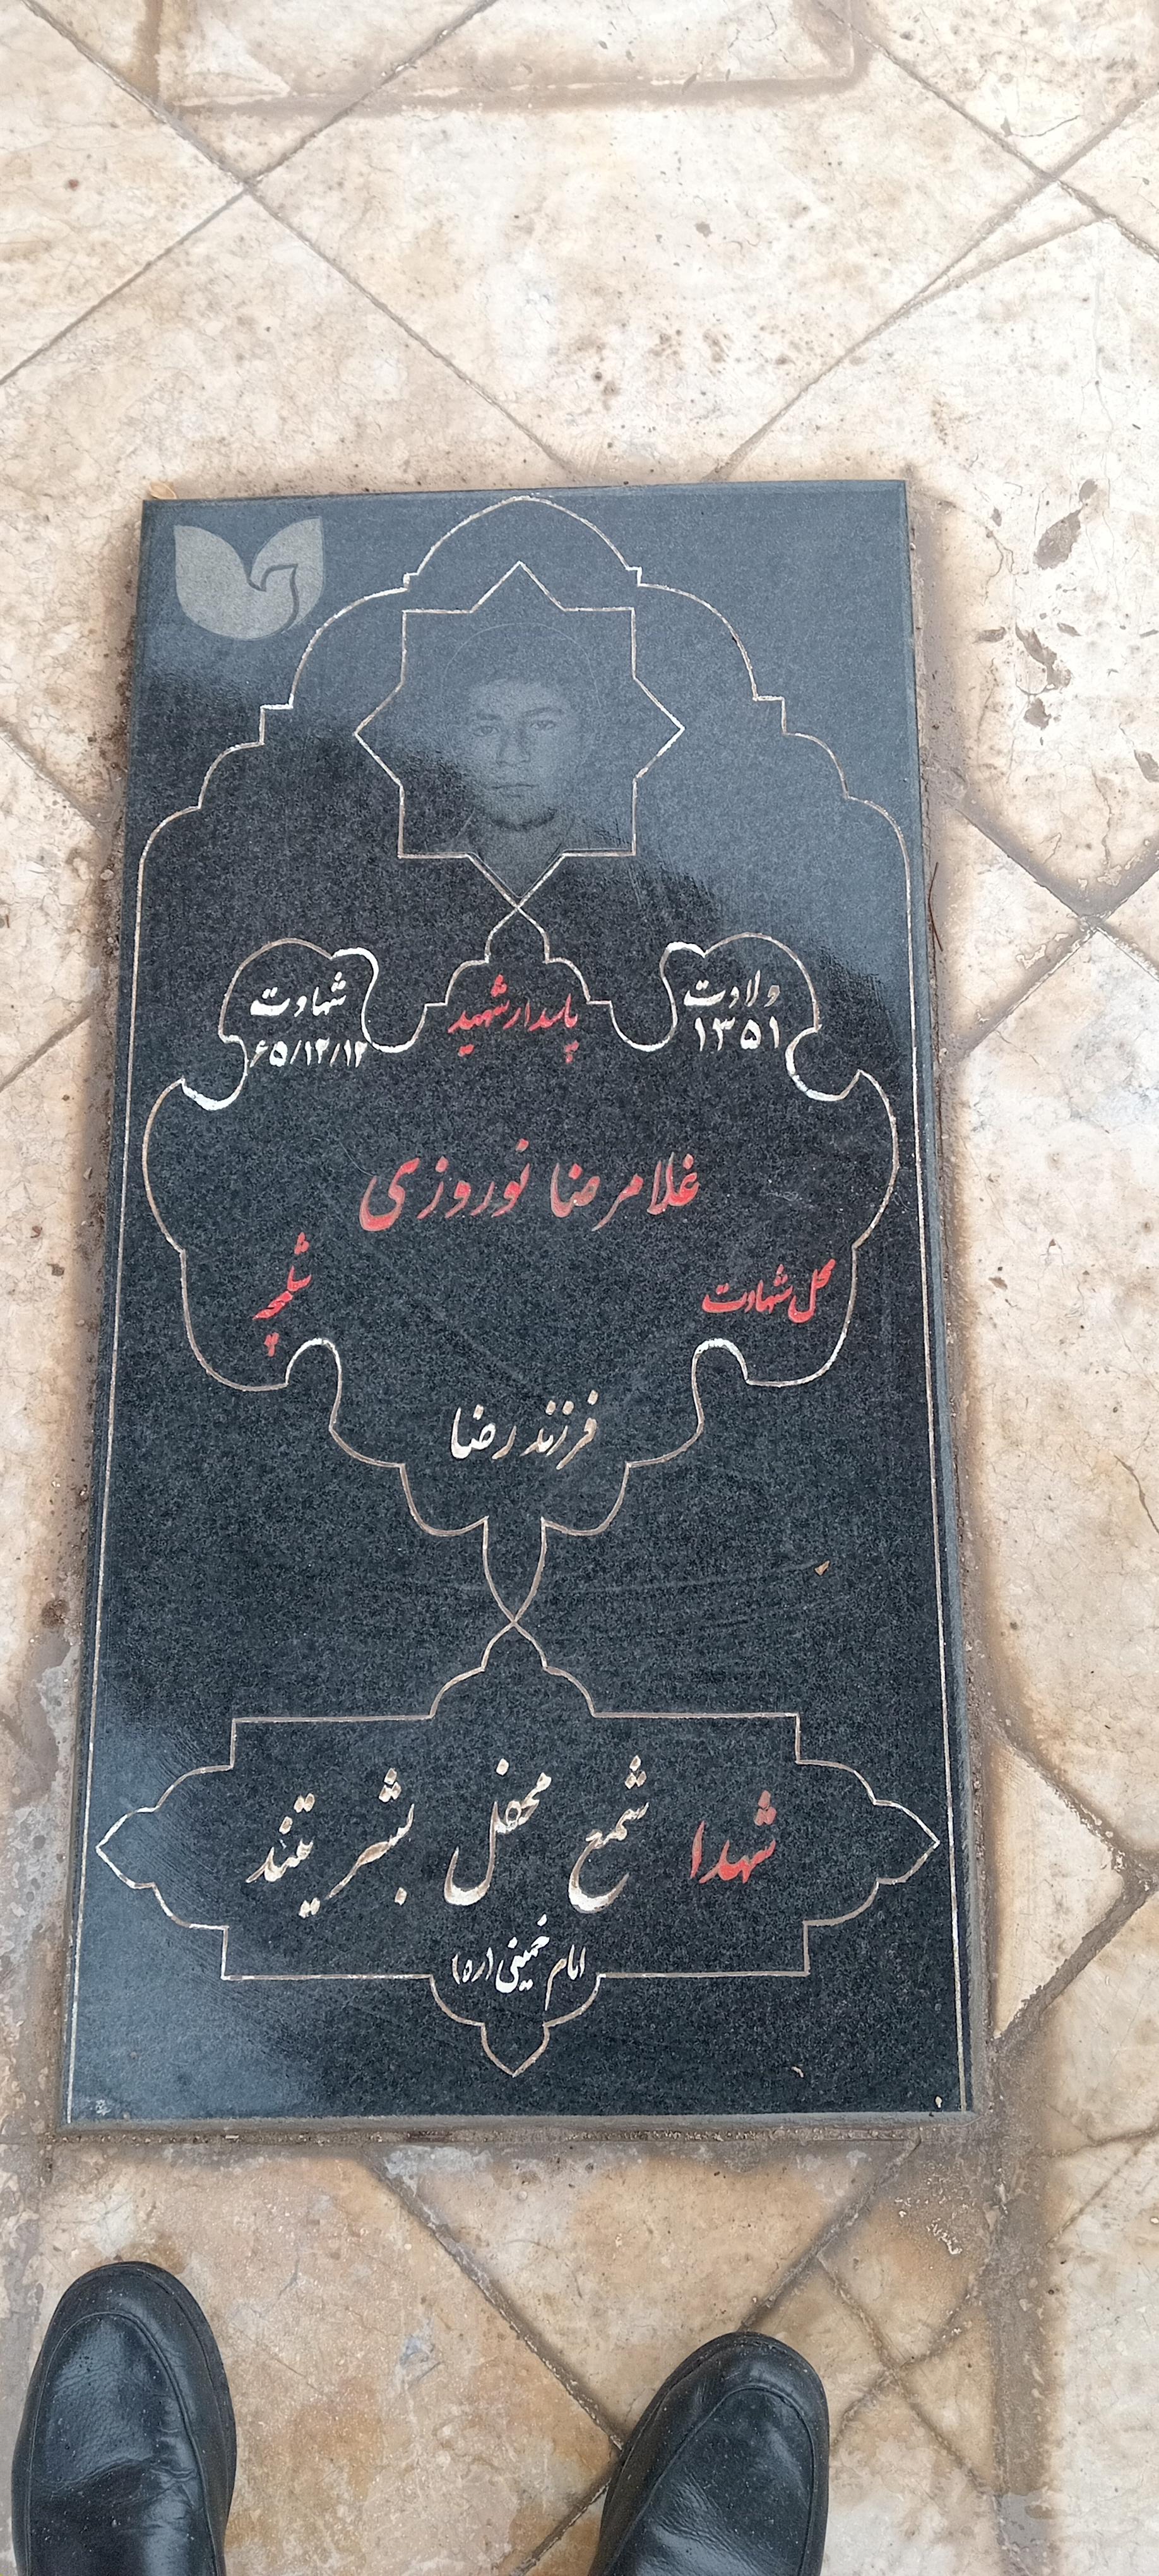 ولادت
۱۳۵۱
پاسدار شهید
شهادت
۶۵/۱۲/۱۲
غلامرضا نوروزی
محل شهادت
شلمچه
فرزند رضا
شهدا شمع محفل بشریتند
امام خمینی (ره)